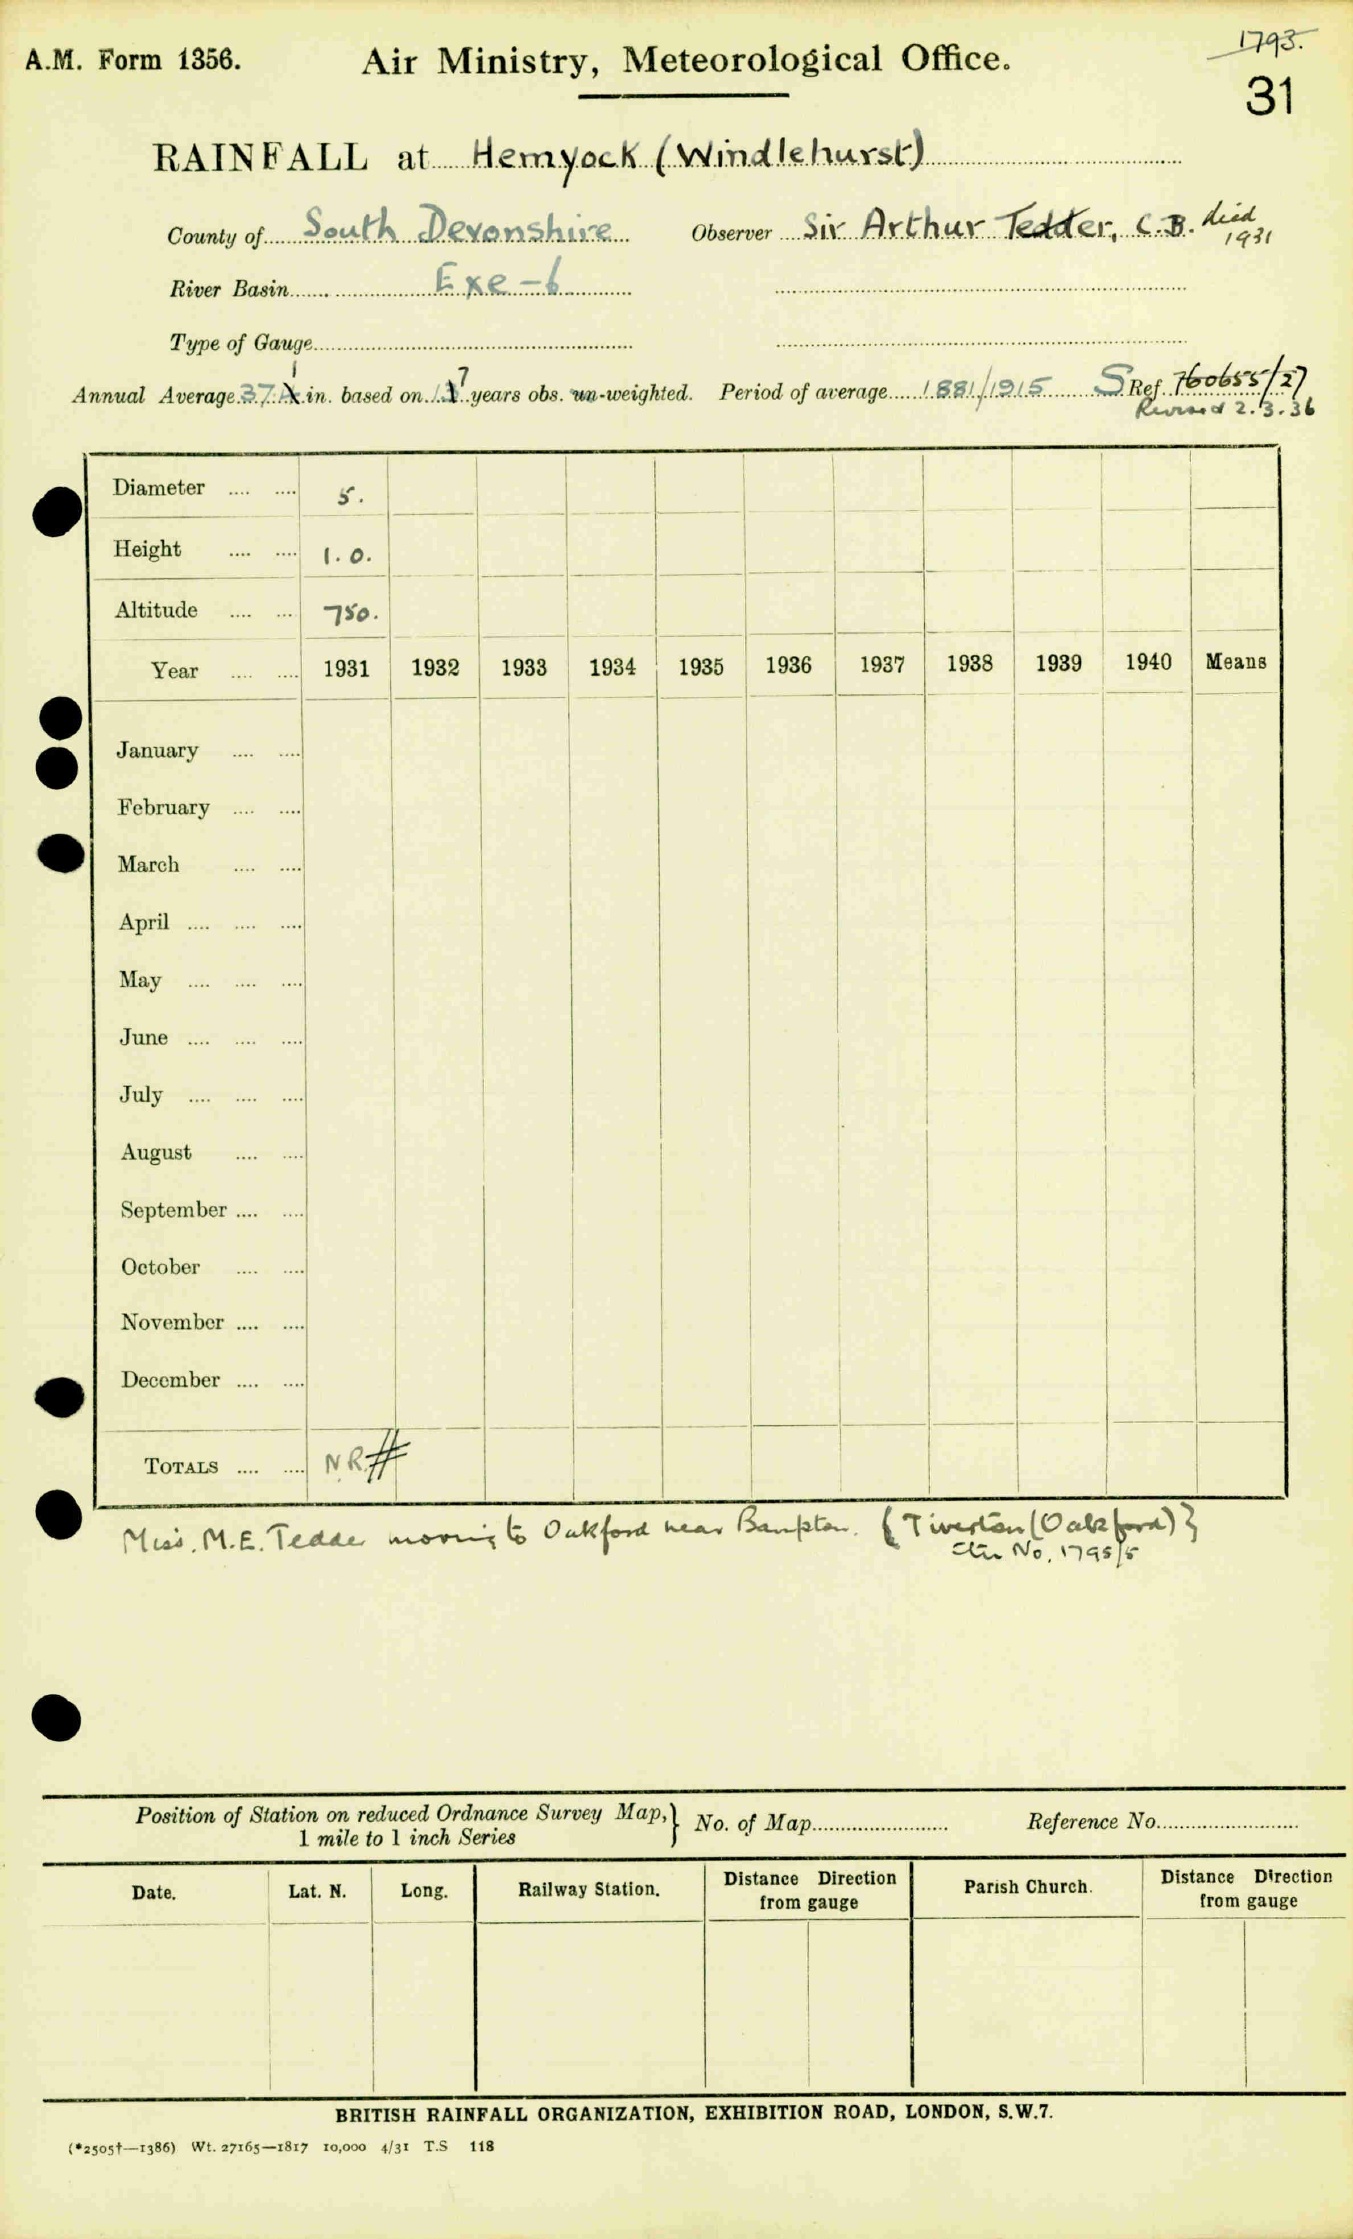 A.M. Form 1356.
Air Ministry, Meteorological Office.
1793.
31
RAINFALL at Hemyock (Windlehurst)
County of South Devonshire Observer Sir Arthur Tedder, C.B. died 1931
River Basin Exe - 6
Type of Gauge
Annual Average 37. 1 in. based on 17 years obs. un-weighted. Period of average 1881/1915 S Ref. 760655/27
Revised 2.3.36
Diameter .... .... 5.
Height .... .... 1.0.
Altitude .... .... 750.
Year .... .... 1931 1932 1933 1934 1935 1936 1937 1938 1939 1940 Means
January .... ....
February .... ....
March .... ....
April .... .... ....
May .... .... ....
June .... .... ....
July .... .... ....
August .... ....
September .... ....
October .... ....
November .... ....
December .... ....
TOTALS .... .... N.R. #
Miss. M.E. Tedder moving to Oakford near Bampton. { Tiverton (Oakford) }
No. 1795/5
Position of Station on reduced Ordnance Survey Map, } No. of Map Reference No.
1 mile to 1 inch Series
Date. Lat. N. Long. Railway Station. Distance Direction from gauge Parish Church. Distance Direction from gauge
BRITISH RAINFALL ORGANIZATION, EXHIBITION ROAD, LONDON, S.W.7.
(*2505†—1386) Wt. 27165—1817 10,000 4/31 T.S 118